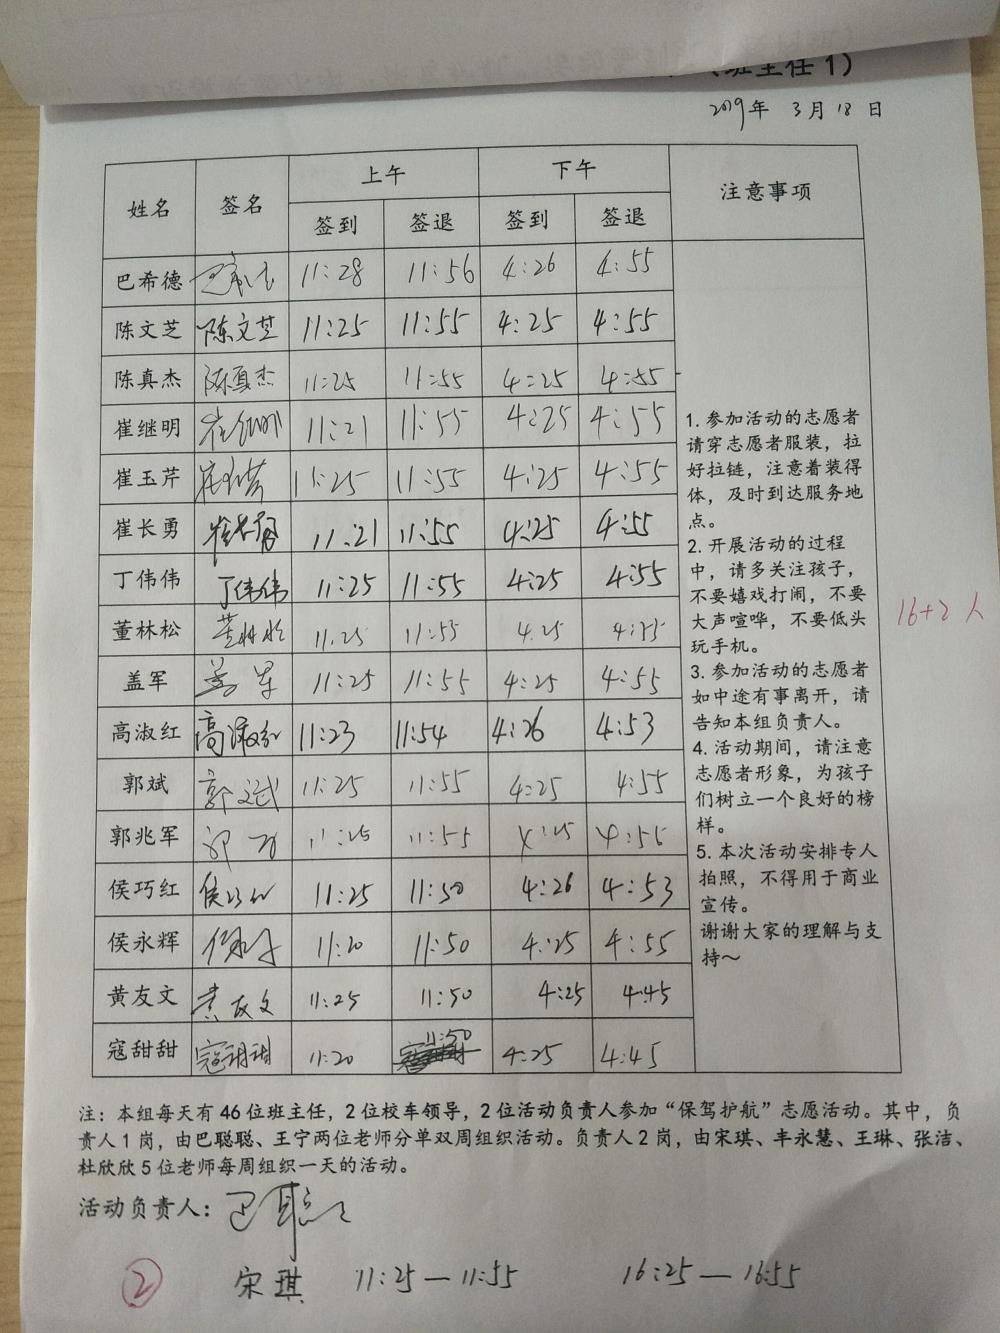 （班主任1）
2019年 3月18日
姓名 签名 上午 下午 注意事项
签到 签退 签到 签退
巴希德 巴希德 11:28 11:56 4:26 4:55
陈文芝 陈文芝 11:25 11:55 4:25 4:55
陈真杰 陈真杰 11:25 11:55 4:25 4:55
崔继明 崔继明 11:21 11:55 4:25 4:55
崔玉芹 崔玉芹 11:25 11:55 4:25 4:55
崔长勇 崔长勇 11:21 11:55 4:25 4:55
丁伟伟 丁伟伟 11:25 11:55 4:25 4:55
董林松 董林松 11:25 11:55 4:25 4:55
盖军 盖军 11:25 11:55 4:25 4:55
高淑红 高淑红 11:23 11:54 4:26 4:53
郭斌 郭斌 11:25 11:55 4:25 4:55
郭兆军 11:25 11:55 4:25 4:55
侯巧红 侯巧红 11:25 11:50 4:26 4:53
侯永辉 11:20 11:50 4:25 4:55
黄友文 黄友文 11:25 11:50 4:25 4:45
寇甜甜 寇甜甜 11:20 11:50 4:25 4:45
1. 参加活动的志愿者
请穿志愿者服装，拉
好拉链，注意着装得
体，及时到达服务地
点。
2. 开展活动的过程
中，请多关注孩子，
不要嬉戏打闹，不要
大声喧哗，不要低头
玩手机。
3. 参加活动的志愿者
如中途有事离开，请
告知本组负责人。
4. 活动期间，请注意
志愿者形象，为孩子
们树立一个良好的榜
样。
5. 本次活动安排专人
拍照，不得用于商业
宣传。
谢谢大家的理解与支
持～
16+2人
注：本组每天有46位班主任，2位校车领导，2位活动负责人参加“保驾护航”志愿活动。其中，负
责人1岗，由巴聪聪、王宁两位老师分单双周组织活动。负责人2岗，由宋琪、丰永慧、王琳、张洁、
杜欣欣5位老师每周组织一天的活动。
活动负责人：巴聪聪
② 宋琪 11:25—11:55 16:25—16:55